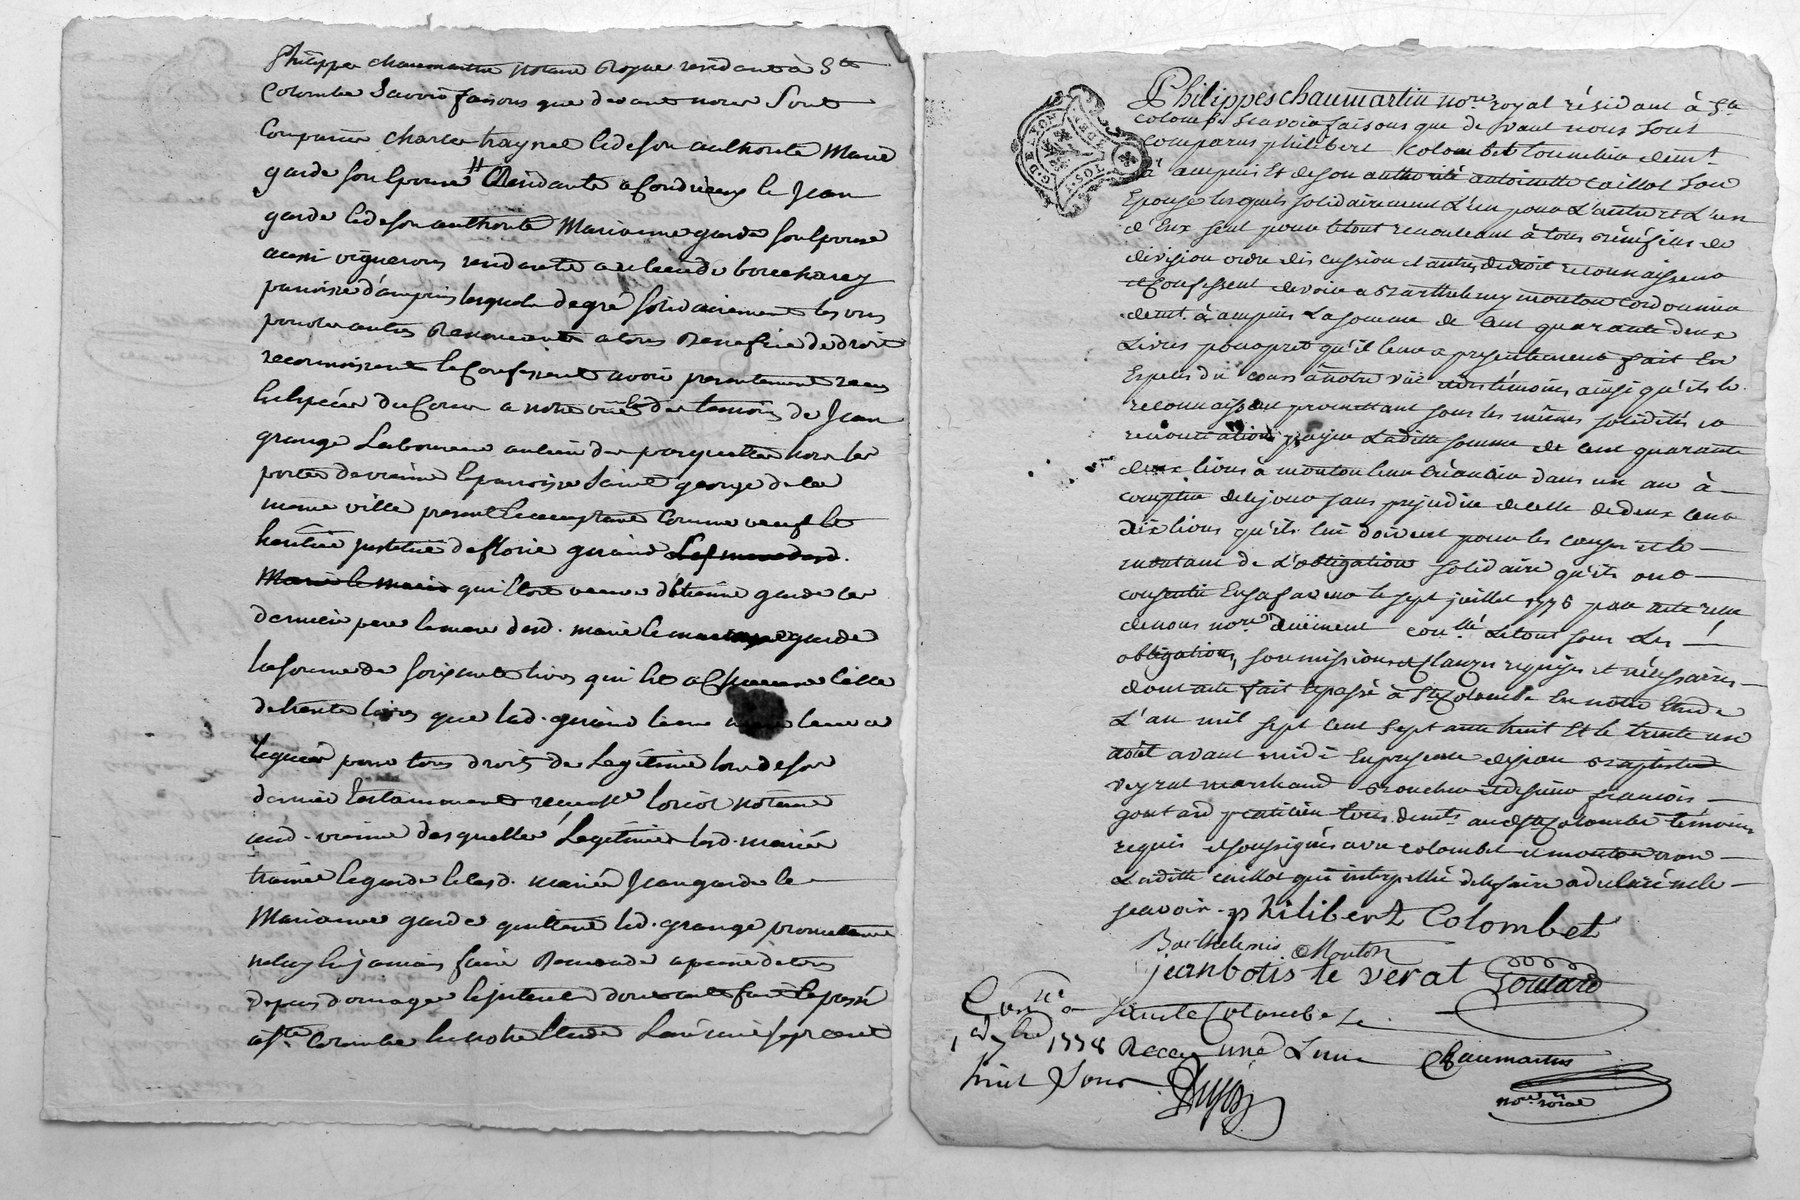 Philippe chaumartin notaire Royal residant à Ste
Colombe Savoir faisons que devant nous Sont
Comparus charles traynel & de son authorité Marie
garde son Epouse # Residants a Condrieux & Jean
garde & de son authorité Marianne garde son Epouse
aussi vignerons residants au lieu de boucharey
paroisse d'ampuis lesquels de gré solidairement les uns
pour les autres Renonceants a tous Benefice de droit
reconnoissent & Confessent avoir presentement receu
En Espéces du Cours a notre vüe & des temoins de Jean
grange Laboureur au lieu de hors les
portes de vienne & paroisse Saint george de la
meme ville present & acceptant Comme veuf &
heritier institué de guiand
qui Etoit veuve d'Etienne garde ces
derniers pere & mere desd. marie & garde
la somme de soixante livres qui Et a celle
de trente livres que lad. guiand leur mere leur a
leguée pour tous droits de Legitime lors de son
dernier testamment receu Me loriot notaire
aud. vienne desquelles Legitimes lesd. mariés
& garde & lesd. mariés Jean garde &
Marianne garde quittent led. grange promettant
ne luy En jamais faire Demande a peine de tous
depens domages & interets dont acte fait & passé
a Ste Colombe En notre Etude L'an mil sept cent
G. DE LYON
DEUX SOLS
Philippes chaumartin nore. royal résidant à Ste
colombe sçavoir faisons que de vant nous sont
comparus philibert colombet demt.
à ampuis Et de son authorité antoinette caillot son
Epouse lesquels solidairement L'un pour L'autre et L'un
d'Eux seul pour le tout renonceant à tous bénéfices de
division ordre discussion et autres de droit reconnaissent
et confessent devoir a Barthelemy mouton cordonnier
demt. à ampuis La somme de cent quarante deux
Livres pour pret qu'il leur a presentement fait En
Especes du cours à notre vüe et des témoins ainsi qu'ils le
reconnaissent promettant sous les mêmes solidités et
renonciations payer Laditte somme de cent quarante
deux livres à mouton leur créancier dans un an à
compter de ce jour sans prejudice de celle de deux cent
dix livres qu'ils lui doivent pour les causes et le
montant de L'obligation solidaire qu'ils ont
consentie En sa faveur le sept juillet 1776 par acte reçu
de nous nore. düement conllé. Le tout sous Les
obligations, soumissions et clauzes requises et nécessaires
dont acte fait & passé à Ste Colombe En notre Etude
L'an mil sept cent septante huit Et le trente un
août avant midi En presence de jean Baptiste
veyrat marchand Boucher et de sieur francois
goutard praticien tous deux demts. audt Ste Colombe témoins
requis et soussignés avec colombet et mouton non
Laditte caillot qui interpellée de le faire a declaré ne le
scavoir.
philibert Colombet
Barthelemis Mouton
jeanbatiste verat Goutard
Conlle a Sainte Colombe Le
1er 7bre 1778 Recu une Livre
huit Sous
Chaumartin
nore. roial